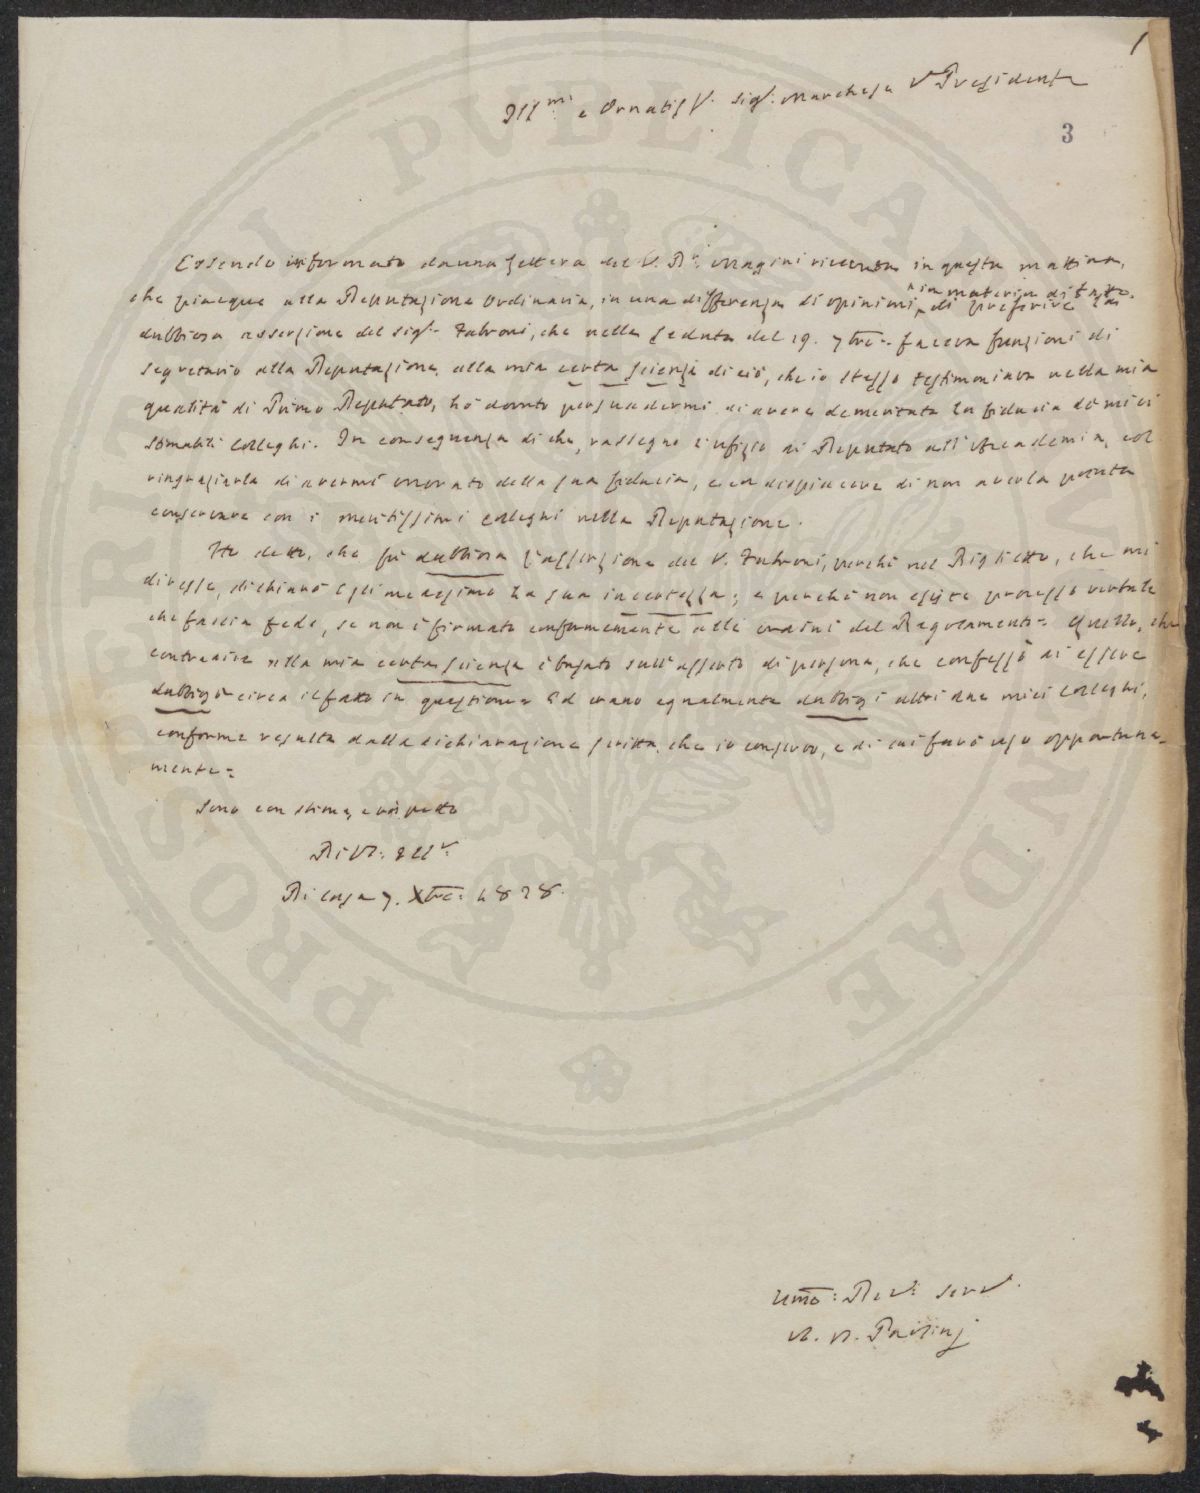 1
Ill.mo e Ornatiss.o Sig.r Marchese V. Presidente
3
Essendo informato da una lettera del V. Magini ricevuta in questa mattina,
che piacque alla Deputazione Ordinaria, in una differenza di opinioni in materia di fatto, di preferire la
dubbiosa asserzione del sig.r Fabroni, che nella seduta del 19. 7bre: faceva funzioni di
segretario alla Deputazione, alla mia certa scienza di ciò, che io stesso testimoniava nella mia
qualità di Primo Deputato, hò dovuto persuadermi di avere demeritata la fiducia de miei
stimabili Colleghi. In conseguenza di che, rassegno l'ufizio di Deputato all'Accademia, col
ringraziarla di avermi onorato della sua fiducia, e con dispiacere di non averla potuta
conservare con i meritissimi colleghi nella Deputazione.
Ho detto, che fù dubbiosa l'asserzione del V. Fabroni, perchè nel Biglietto, che mi
diresse, dichiarò Egli medesimo la sua incertezza; e perchè non esiste processo verbale
che faccia fede, se non è firmato conformemente alli ordini del Regolamento: Quello, che
contradice alla mia certa scienza è basato sull'asserto di persona, che confessò di essere
dubbiosa circa il fatto in questione: Ed erano egualmente dubbiosi altri due miei Colleghi,
conforme resulta dalla dichiarazione scritta, che io conservo, e di cui farò uso opportuna-
mente:
Sono con stima, e rispetto
Di V. Ill.
Di Casa 7. Xbre: 1828.
Umo: Dev: Serv.
PROSPERITATI PVBLICAE AVGENDAE